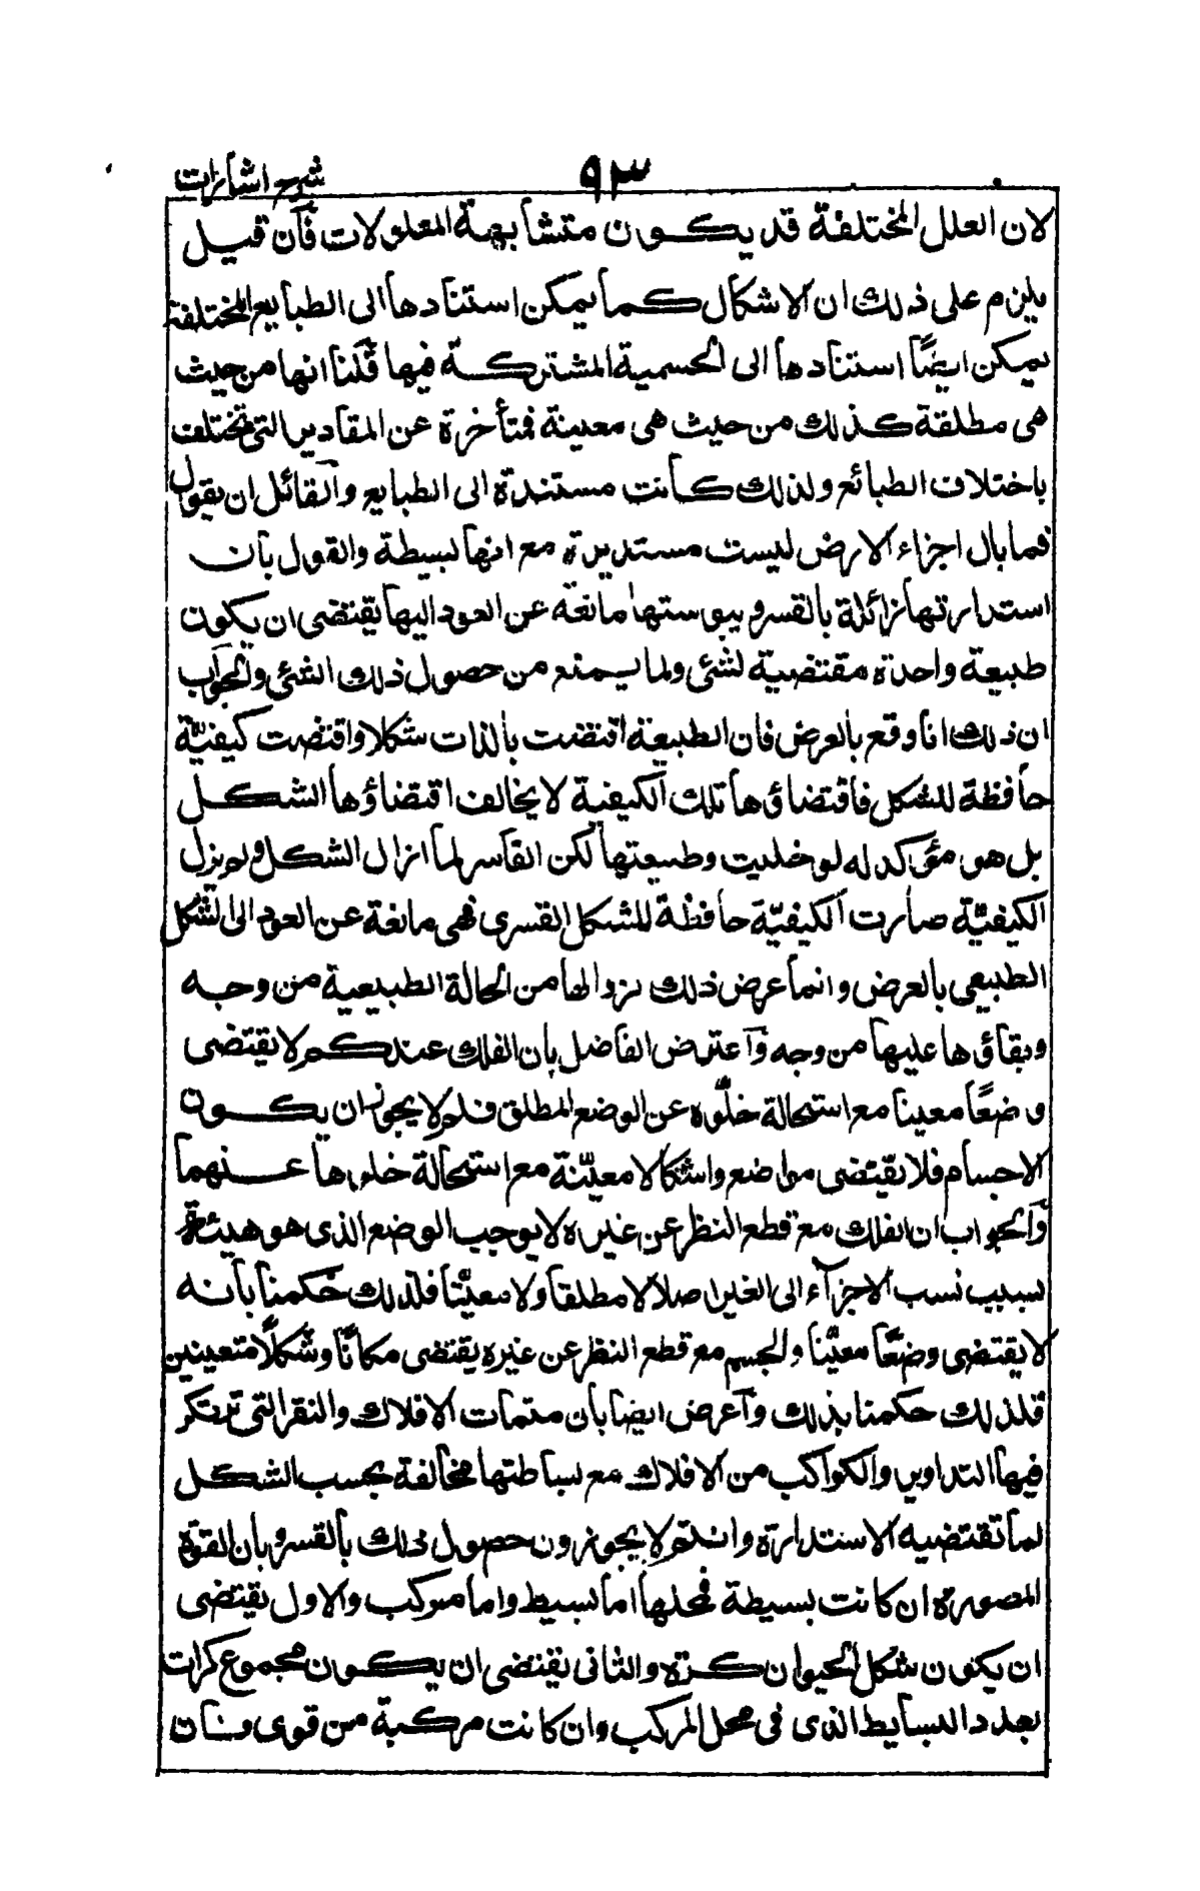 شرح اشارات
٩٣
لان العلل المختلفة قد يكون متشابهة المعلولات فآن قيل
يلزم على ذلك ان الاشكال كما يمكن استنادها الى الطبايع المختلفة
يمكن ايضًا استنادها الى الجسمية المشتركة فيها قلنا انها من حيث
هى مطلقة كذلك من حيث هى معينة فمتأخرة عن المقادير التى تختلف
باختلاف الطبائع ولذلك كانت مستندة الى الطبايع وآلقائل ان يقول
فما بال اجزاء الارض ليست مستديرة مع انها بسيطة والقول بان
استدارتها زائلة بالقسر ويبوستها مانعة عن العود اليها يقتضى ان يكون
طبيعة واحدة مقتضية لشئ ولما يمنع من حصول ذلك الشئ وآلجواب
ان ذلك انما وقع بالعرض فان الطبيعة اقتضت بالذات شكلا واقتضت كيفيّة
حافظة للشكل فاقتضاؤها تلك الكيفية لا يخالف اقتضاؤها الشكل
بل هو مؤكد له لو خليت وطبيعتها لكن القاسر لما ازال الشكل ولم يزل
الكيفيّة صارت الكيفيّة حافظة للشكل القسرى فهى مانعة عن العود الى الشكل
الطبيعى بالعرض وانما عرض ذلك لزوالها من الحالة الطبيعية من وجه
وبقاؤها عليها من وجه وآعترض الفاضل بان الفلك عندكم لا يقتضى
وضعًا معينا مع استحالة خلّوه عن الوضع المطلق فلم لا يجوز ان يكون
الاجسام فلا يقتضى مواضع واشكالا معيّنة مع استحالة خلوها عنهما
وآلجواب ان الفلك مع قطع النظر عن غيره لا يوجب الوضع الذى هو هيئة
بسبب نسب الاجزآء الى الغير اصلا لا مطلقا ولا معيّنا فلذلك حكمنا بانه
لا يقتضى وضعًا معيّنا والجسم مع قطع النظر عن غيره يقتضى مكانًا وشكلًا متعينين
فلذلك حكمنا بذلك وآعرض ايضا بان متممات الافلاك والنقر التى ترتكز
فيها التداوير والكواكب من الافلاك مع بساطتها مخالفة بحسب الشكل
لما تقتضيه الاستدارة وانتم لا يجوزون حصول ذلك بالقسر وبان القوة
المصورة ان كانت بسيطة فمحلها اما بسيط واما مركب والاول يقتضى
ان يكون شكل الحيوان كرة والثانى يقتضى ان يكون مجموع كرات
بعدد البسايط الذى فى محل المركب وان كانت مركبة من قوى وبان